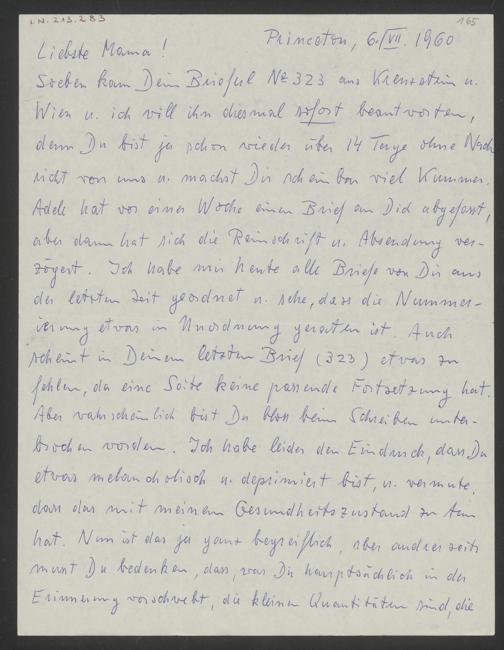 I.N. 213.283
165
Princeton, 6./VII. 1960
Liebste Mama!
Soeben kam Dein Brieferl № 323 aus Kreuzstein u.
Wien u. ich will ihn diesmal sofort beantworten,
denn Du bist ja schon wieder über 14 Tage ohne Nach
richt von uns u. machst Dir scheinbar viel Kummer.
Adele hat vor einer Woche einen Brief an Dich abgefasst,
aber dann hat sich die Reinschrift u. Absendung ver-
zögert. Ich habe mir heute alle Briefe von Dir aus
der letzten Zeit geordnet u. sehe, dass die Nummer-
ierung etwas in Unordnung geraten ist. Auch
scheint in Deinem letzten Brief (323) etwas zu
fehlen, da eine Seite keine passende Fortsetzung hat.
Aber wahrscheinlich bist Du bloss beim Schreiben unter-
brochen worden. Ich habe leider den Eindruck, dass Du
etwas melancholisch u. deprimiert bist, u. vermute,
dass das mit meinem Gesundheitszustand zu tun
hat. Nun ist das ja ganz begreiflich, aber andrerseits
musst Du bedenken, dass, was Dir hauptsächlich in der
Erinnerung vorschwebt, die kleinen Quantitäten sind, die